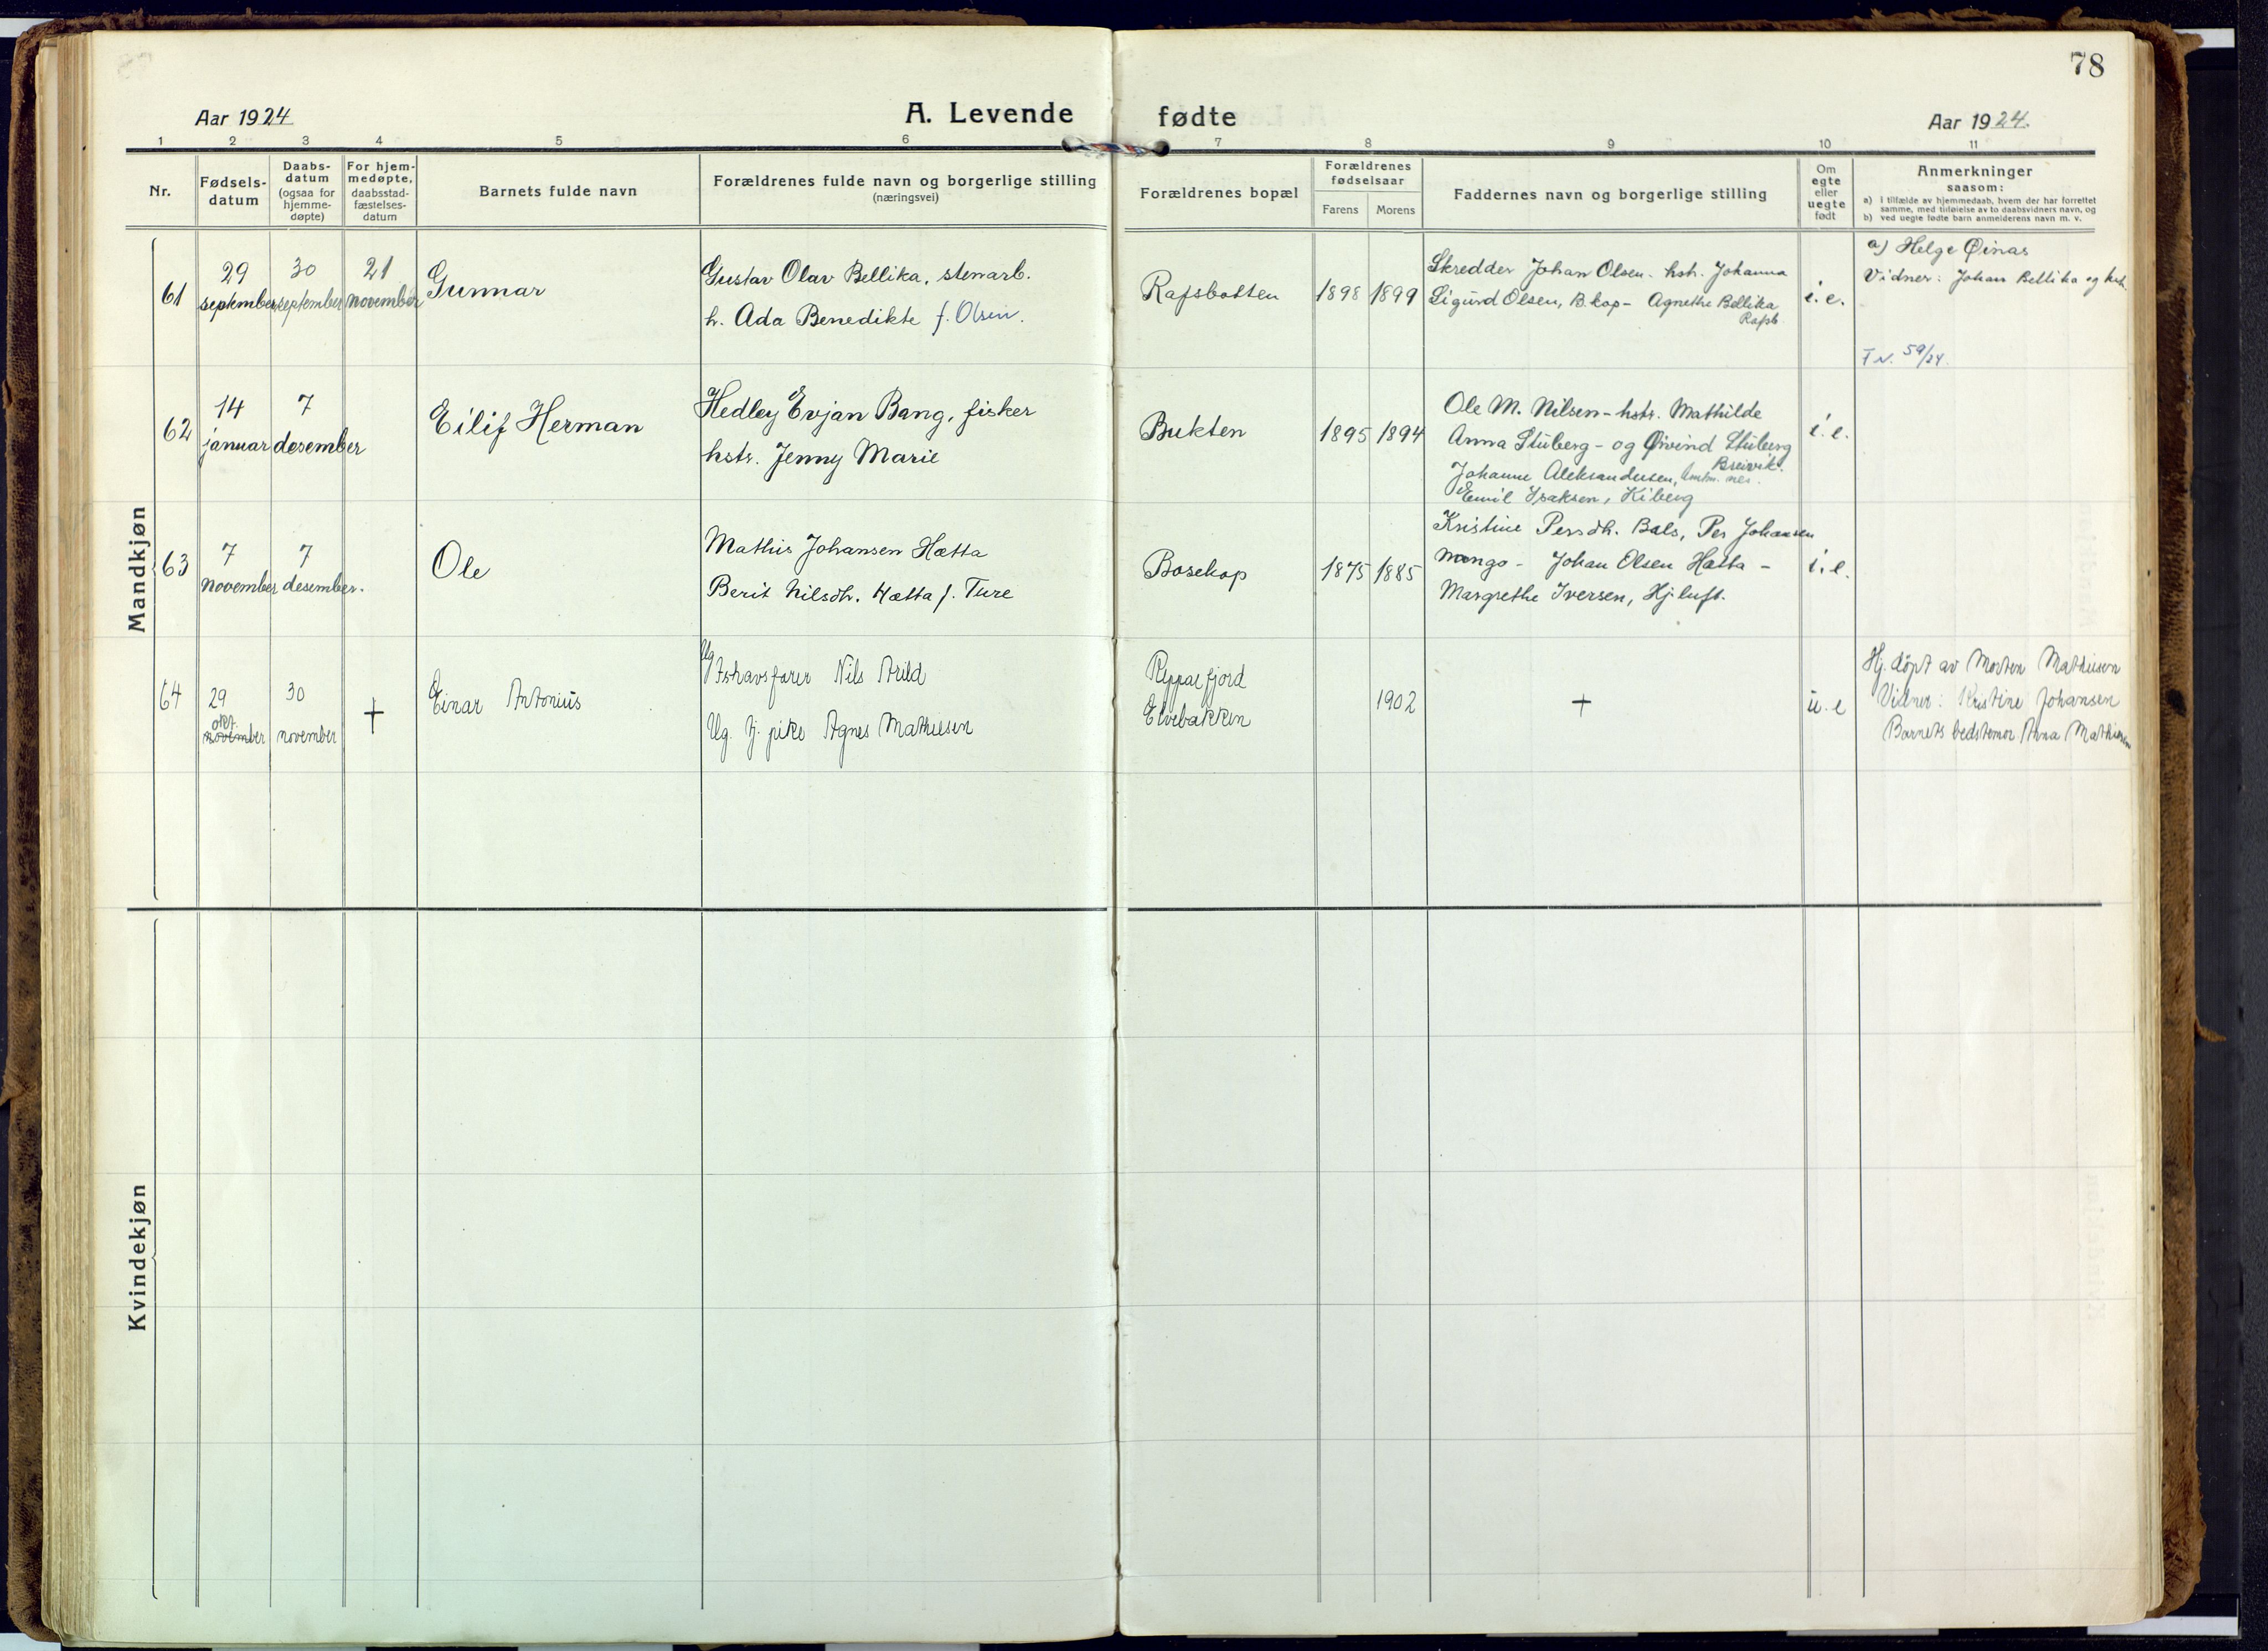 78
Aar 1924 A. Levende fødte Aar 1924.
1 2 3 4 5 6 7 8 9 10 11
Nr.
Fødsels-
datum
Daabs-
datum
(ogsaa for
hjemme-
døpte)
For hjem-
medøpte,
daabsstad-
fæstelses-
datum
Barnets fulde navn
Forældrenes fulde navn og borgerlige stilling
(næringsvei)
Forældrenes bopæl
Forældrenes
fødselsaar
Farens Morens
Faddernes navn og borgerlige stilling
Om
egte
eller
uegte
født
Anmerkninger
saasom:
a) I tilfælde av hjemmedaab, hvem der har forrettet
samme, med tilføielse av to daabsvidners navn, og
b) ved uegte fødte barn anmelderens navn m. v.
Mandkjøn
61
29
september
30
september
21
november
Gunnar
Gustav Olav Bellika, stenarb.
h. Ada Benedikte f. Olsen.
Rafsbotten
1898 1899
Skredder Johan Olsen - hstr. Johanna
Sigurd Olsen, B.kop - Agnethe Bellika
Rafsb.
i. e.
a) Helge Øinas
Vidner: Johan Bellika og hst.
F N. 59/24.
62
14
januar
7
desember
Eilif Herman
Hedley Evjan Bang, fisker
hstr. Jenny Marie
Bukten
1895 1894
Ole M. Nilsen - hstr. Mathilde
Anna Stuberg - og Øivind Stuberg
Breivik.
Johanne Aleksandersen,
Emil Isaksen, Kiberg
i. e.
63
7
november
7
desember.
Ole
Mathis Johansen Hætta
Berit Nilsdtr. Hætta f. Ture
Bosekop
1875 1885
Kristine Persdtr. Bals, Per Johansen
Mongo - Johan Olsen Hætta -
Margrethe Iversen, Hj.luft.
i. e.
64
29
okt.
november
30
november
+
Einar Antonius
Ug Ishavsfarer Nils Arild
Ug. tj. pike Agnes Mathiesen
Reppaefjord
Elvebakken
1902
+
u. e
Hj. döpt av Morten Mathiesen
Vidner: Kristine Johansen
Barnets bedstemor Anna Mathiesen
Kvindekjøn